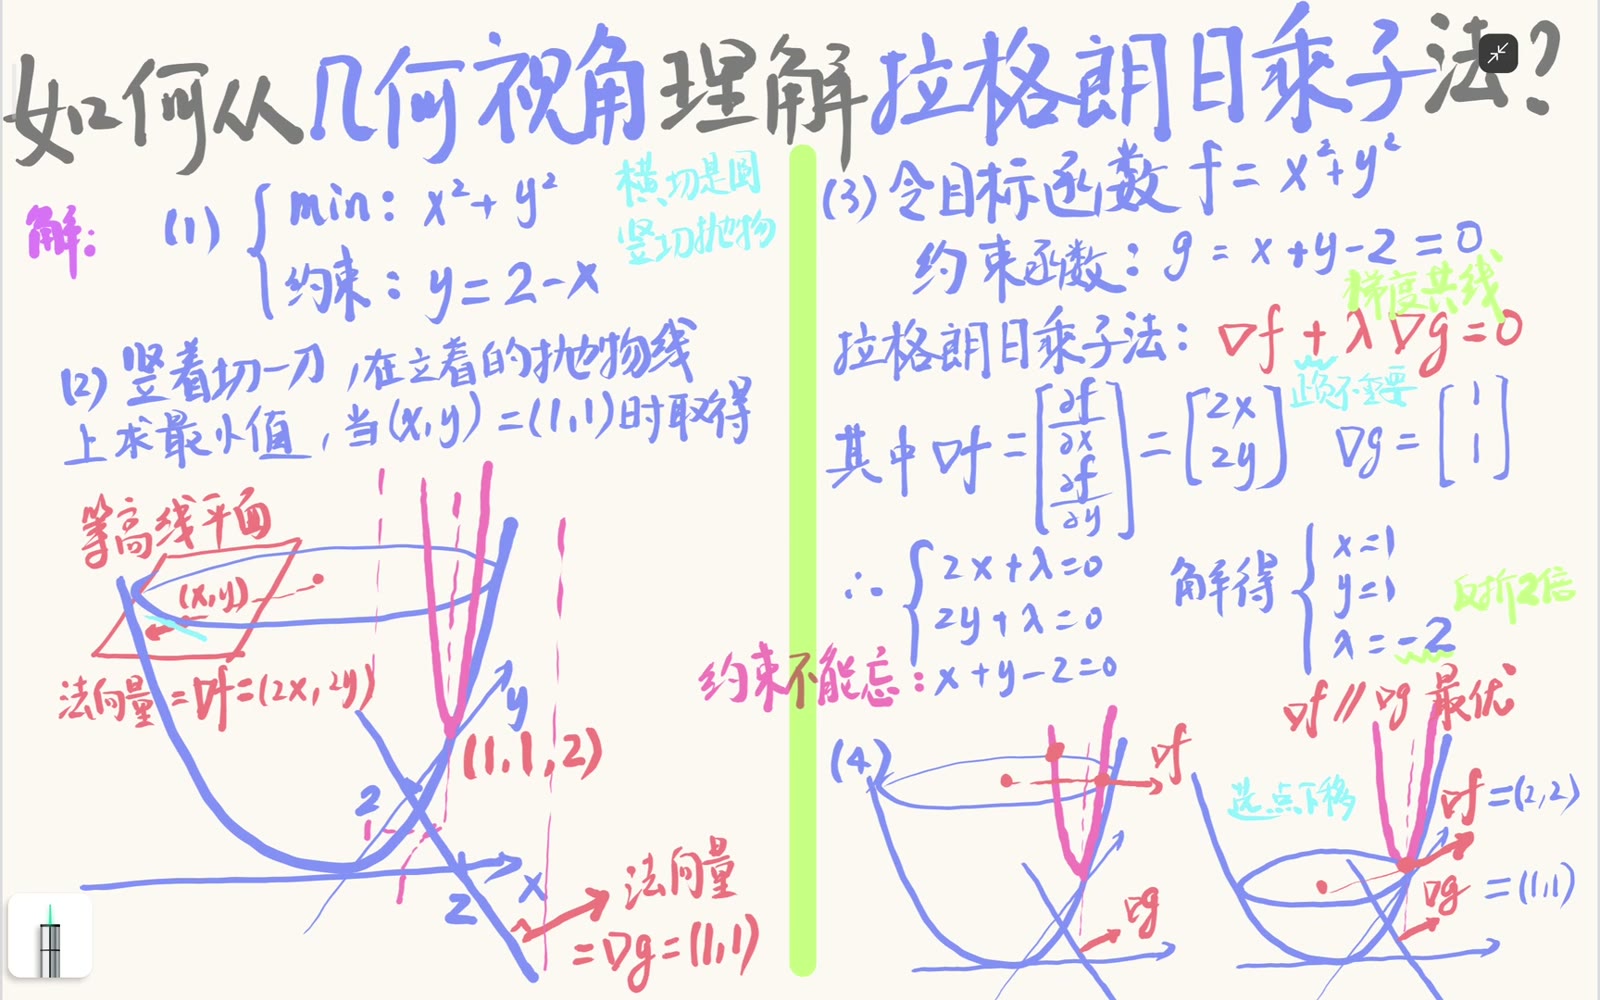 如何从几何视角理解拉格朗日乘子法?
解:
(1) { min: x²+y²
约束: y=2-x
横切是圆
竖切抛物
(2) 竖着切一刀,在立着的抛物线
上求最小值,当(x,y)=(1,1)时取得
等高线平面
(x,y)
法向量=∇f=(2x,2y)
(1,1,2)
y
2
1
2
x
法向量
=∇g=(1,1)
(3) 令目标函数 f=x²+y²
约束函数: g=x+y-2=0
梯度共线
拉格朗日乘子法: ∇f+λ∇g=0
正负不重要
其中 ∇f=[∂f/∂x ∂f/∂y]=[2x 2y] ∇g=[1 1]
∴ { 2x+λ=0
2y+λ=0
约束不能忘: x+y-2=0
解得 { x=1
y=1
λ=-2
反折2倍
∇f∥∇g 最优
(4)
∇f
∇g
选点下移
∇f=(2,2)
∇g=(1,1)